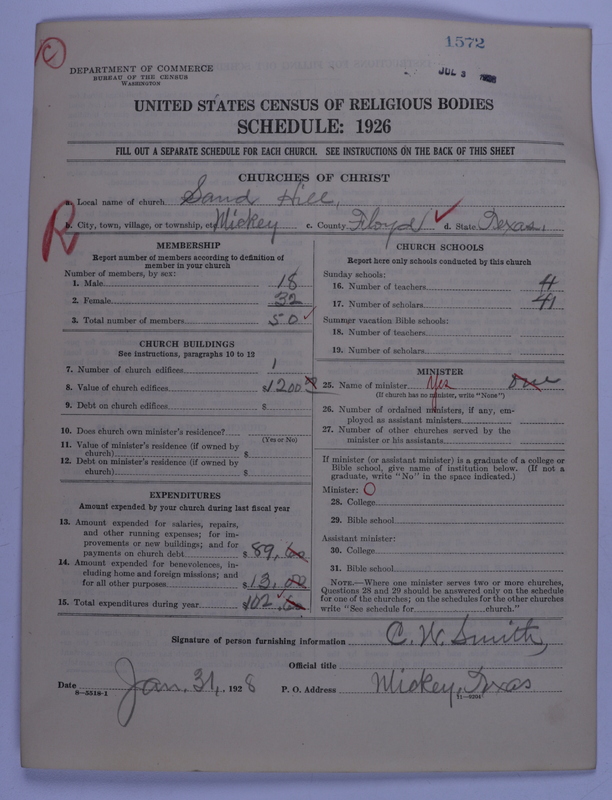 C
1572
JUL 3 1928
DEPARTMENT OF COMMERCE
BUREAU OF THE CENSUS
WASHINGTON
UNITED STATES CENSUS OF RELIGIOUS BODIES
SCHEDULE: 1926
FILL OUT A SEPARATE SCHEDULE FOR EACH CHURCH. SEE INSTRUCTIONS ON THE BACK OF THIS SHEET
CHURCHES OF CHRIST
a. Local name of church Sand Hill,
R
b. City, town, village, or township, etc. Mickey c. County Floyd d. State Texas,
MEMBERSHIP
Report number of members according to definition of
member in your church
Number of members, by sex:
1. Male 18
2. Female 32
3. Total number of members 50
CHURCH BUILDINGS
See instructions, paragraphs 10 to 12
7. Number of church edifices 1
8. Value of church edifices $1200 00
9. Debt on church edifices $
10. Does church own minister's residence?
(Yes or No)
11. Value of minister's residence (if owned by
church) $
12. Debt on minister's residence (if owned by
church) $
EXPENDITURES
Amount expended by your church during last fiscal year
13. Amount expended for salaries, repairs,
and other running expenses; for im-
provements or new buildings; and for
payments on church debt $89.60
14. Amount expended for benevolences, in-
cluding home and foreign missions; and
for all other purposes $13.00
15. Total expenditures during year $102.60
CHURCH SCHOOLS
Report here only schools conducted by this church
Sunday schools:
16. Number of teachers 4
17. Number of scholars 41
Summer vacation Bible schools:
18. Number of teachers
19. Number of scholars
MINISTER
25. Name of minister Yes One
(If church has no minister, write "None")
26. Number of ordained ministers, if any, em-
ployed as assistant ministers
27. Number of other churches served by the
minister or his assistants
If minister (or assistant minister) is a graduate of a college or
Bible school, give name of institution below. (If not a
graduate, write "No" in the space indicated.)
Minister: O
28. College
29. Bible school
Assistant minister:
30. College
31. Bible school
NOTE.—Where one minister serves two or more churches,
Questions 28 and 29 should be answered only on the schedule
for one of the churches; on the schedules for the other churches
write "See schedule for church."
Signature of person furnishing information C. W. Smith,
Official title
Date Jan, 31, 1928 P. O. Address Mickey, Texas
8—5518-1